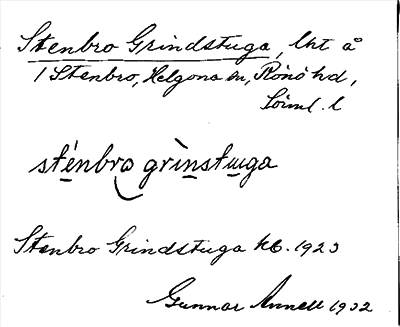 Stenbro Grindstuga, lht å
1 Stenbro, Helgona sn, Rönö hd,
Söiml. l
sténbro grìnstuga
Stenbro Grindstuga kb. 1923
Gunnar Annell 1932